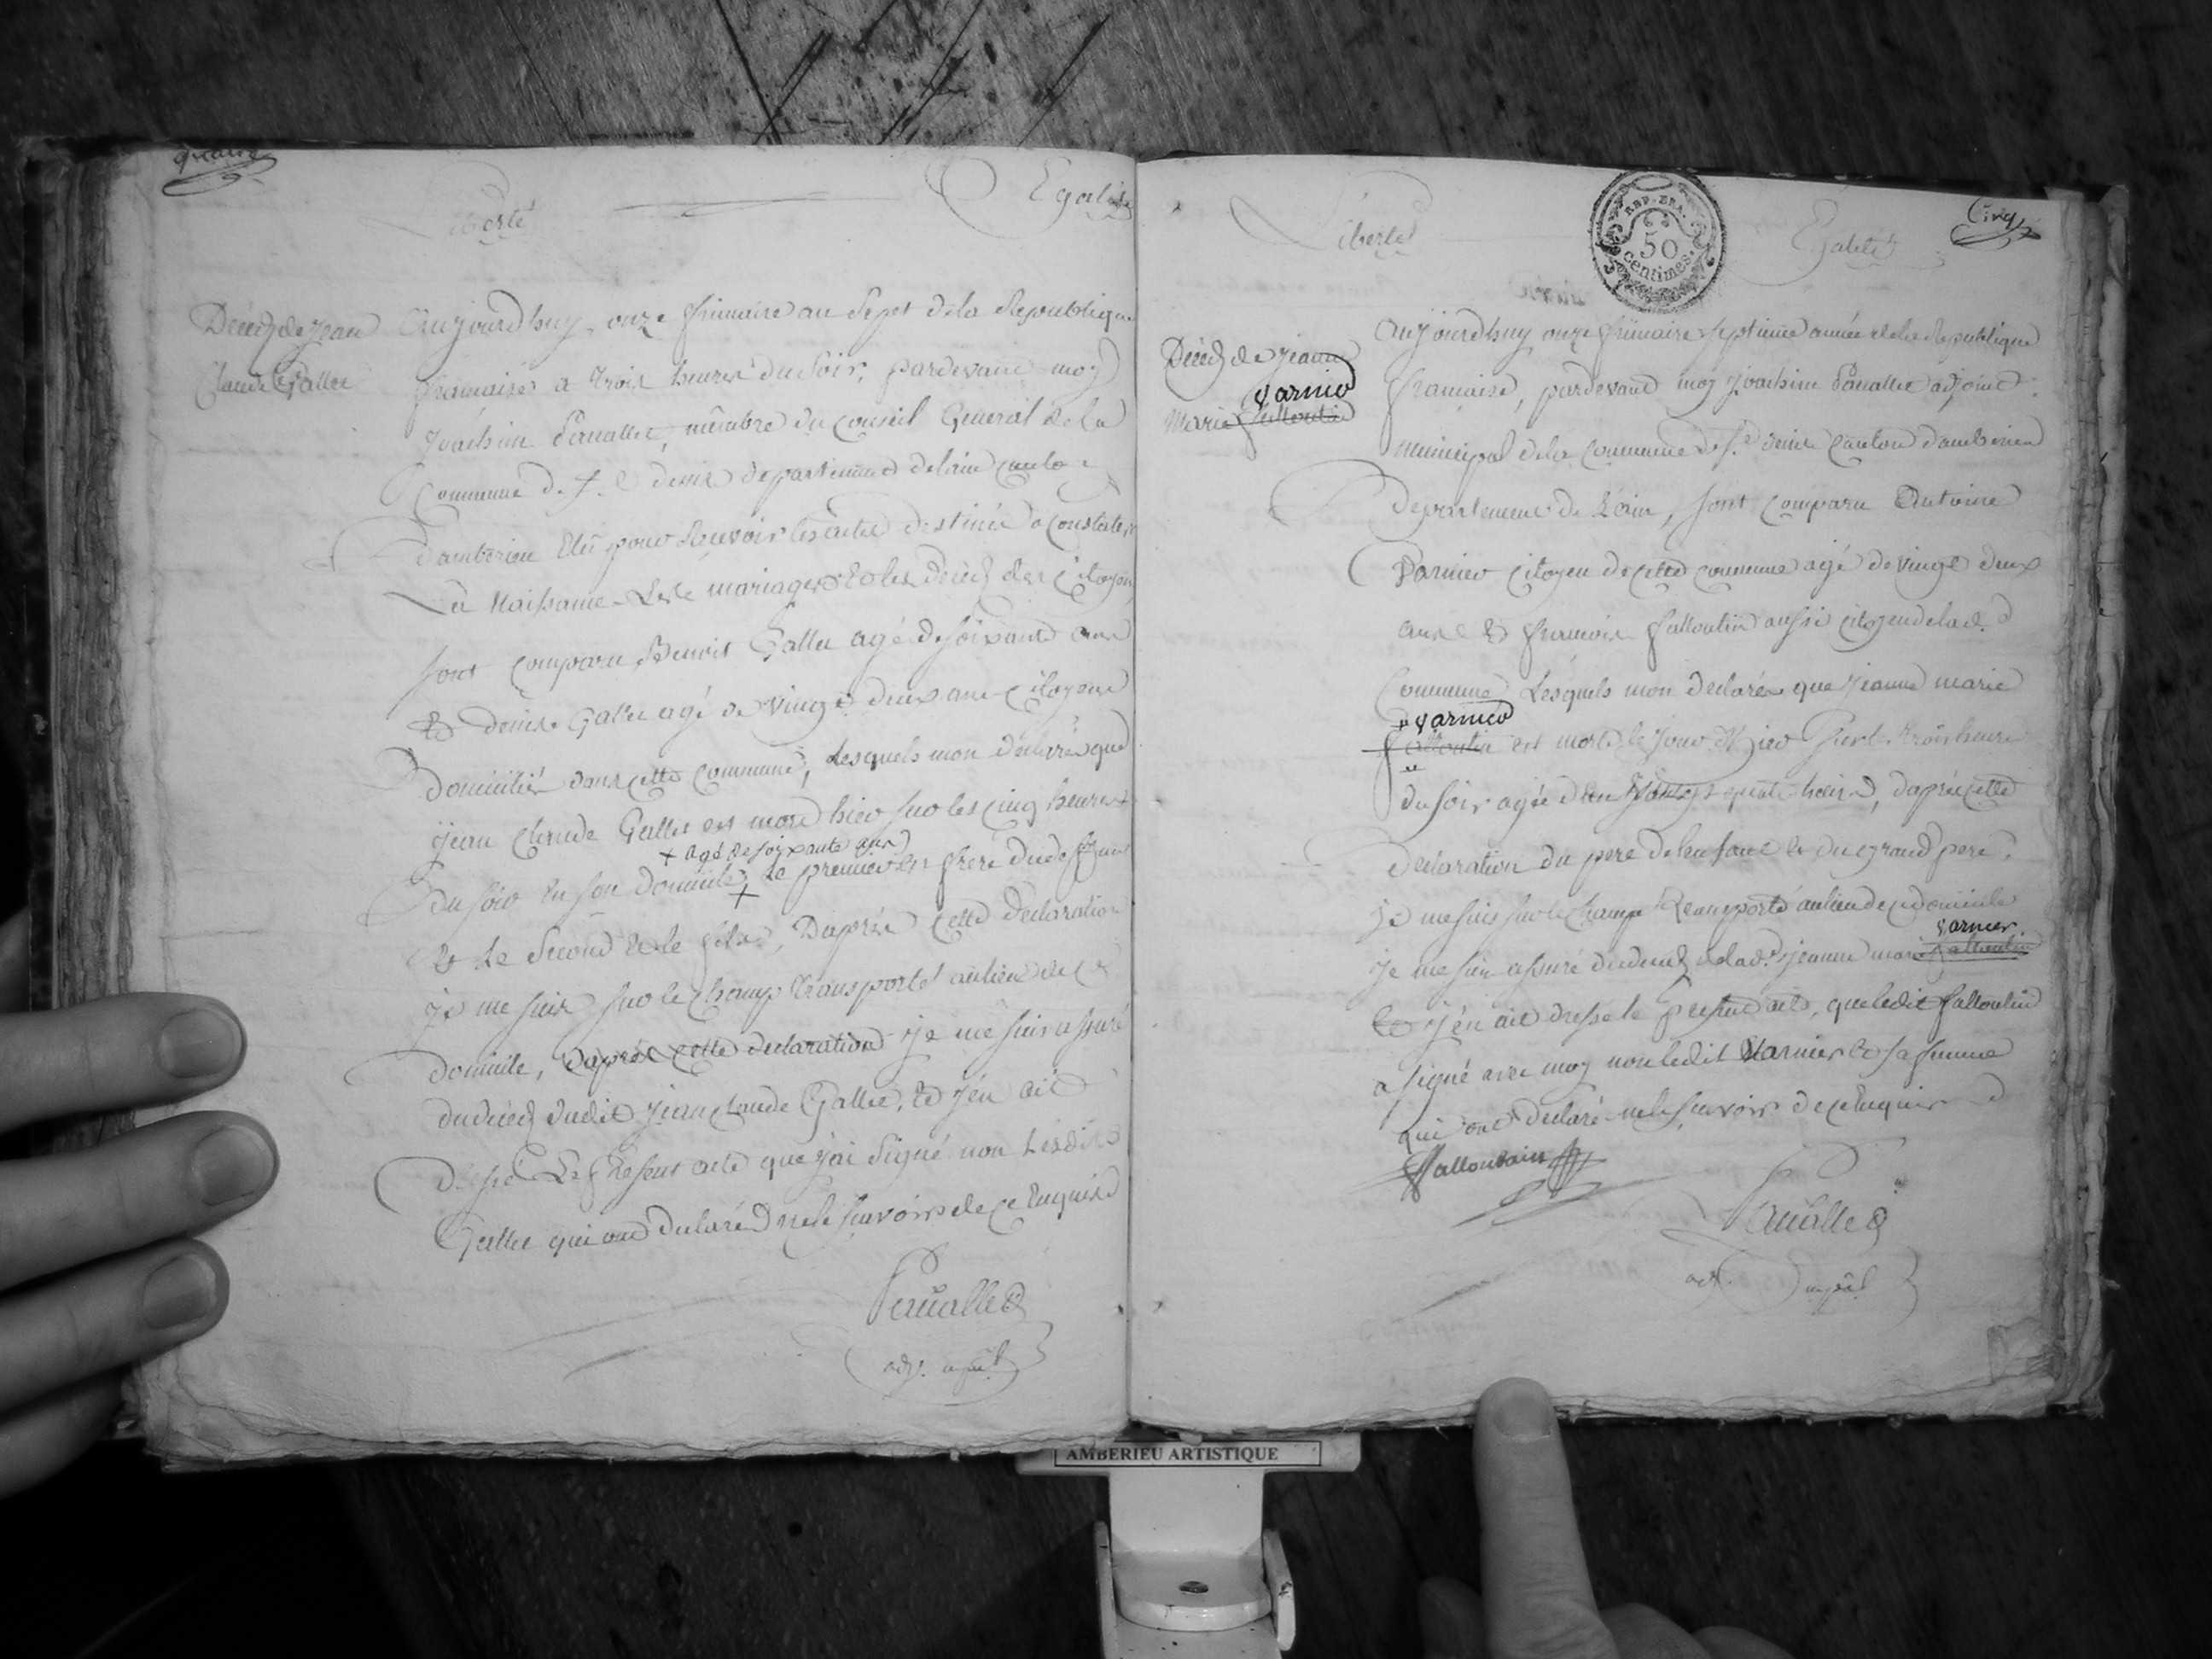 quatre
Liberté Egalité
Décéd de Jean
Claude Gallee
Aujourdhuy onze frimaire an Sept dela Republique
francaise a trois heures du Soir, pardevant moy
Joachim membre du Conseil General de la
Commune de St denis departement delain canton
damberieu Elu pour Recevoir les actes destinés a Constater
La Naissance Les mariages et les Décéd des Citoyen
sont comparu Benoit Gallee agé de soixante ans
et denis Gallee agé de vingt deux ans Citoyens
Domicilié dans cette commune, Lesquels mon déclaré que
jean Claude Gallee est mort hier sur les cinq heures
+ agé de soixante ans
du soir en son domicile + le premier est frere du deffunt
& Le Second est le fils, Daprès cette declaration
je me suis sur le champ transporté au lieu de ce
domicile, daprès cette declaration je me suis assuré
du décéd dudit jean Claude Gallee, et j'en ait
dressé Le present acte que j'ai Signé non Lesdits
Gallee qui ont déclaré ne le scavoir de ce Enquis
adj. mpal
Liberté Egalité
Cinq
REP. FRA.
50
centimes.
Décéd de jeanne
varnier
Marie falloutin
aujourdhuy onze frimaire septieme année de la Republique
française, pardevant moy Joachim adjoint
municipal dela Commune de St denis Canton damberieu
Departement de Lain, sont comparu Antoine
Varnier Citoyen de cette commune agé de vingt deux
ans & francois falloutin aussi citoyen de lad.
Commune Lesquels mon declaré que jeanne marie
varnier
falloutin est morte le jour d'hier sur les trois heures
du soir agée quatre heures, daprès cette
declaration du pere de lenfant & du grand pere,
je me suis sur le champ Transporté au lieu de ce domicile
varnier
je me suis assuré du décéd de lad. jeanne marie falloutin
et j'en ait dressé le present acte, que ledit falloutin
a signé avec moy non ledit Varnier & sa femme
qui ont declaré ne le scavoir de ce Enquis
falloutain
adj. mpal
AMBERIEU ARTISTIQUE